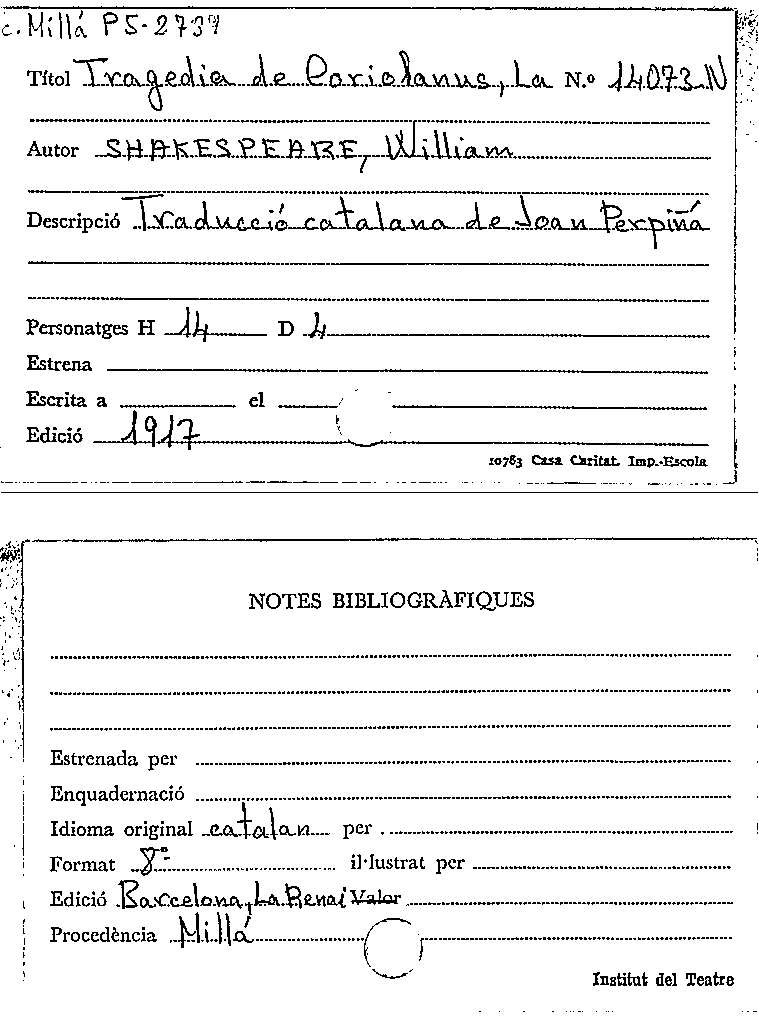 c. Millá PS-2737
Títol Tragedia de Coriolanus, La N.º 14073-N
Autor SHAKESPEARE, William
Descripció Traducció catalana de Joan Perpiñá
Personatges H 14 D 4
Estrena
Escrita a el
Edició 1917
10763 Casa Caritat. Imp.-Escola
NOTES BIBLIOGRÀFIQUES
Estrenada per
Enquadernació
Idioma original catalan per
Format 8º il·lustrat per
Edició Barcelona, La Renai Valor
Procedència Millá
Institut del Teatre